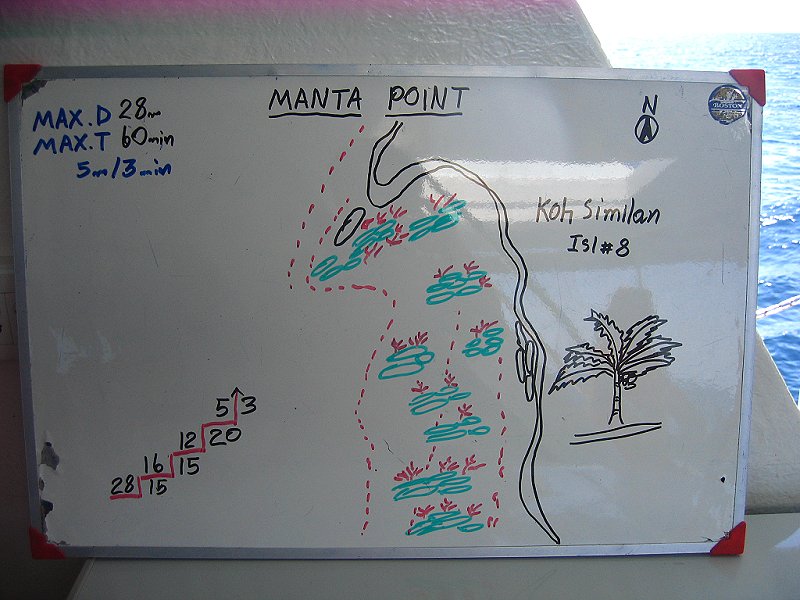 MANTA POINT
MAX.D 28m
MAX.T 60min
5m/3min
N
BOSTON
Koh Similan
Isl#8
5 3
12 20
16 15
28 15